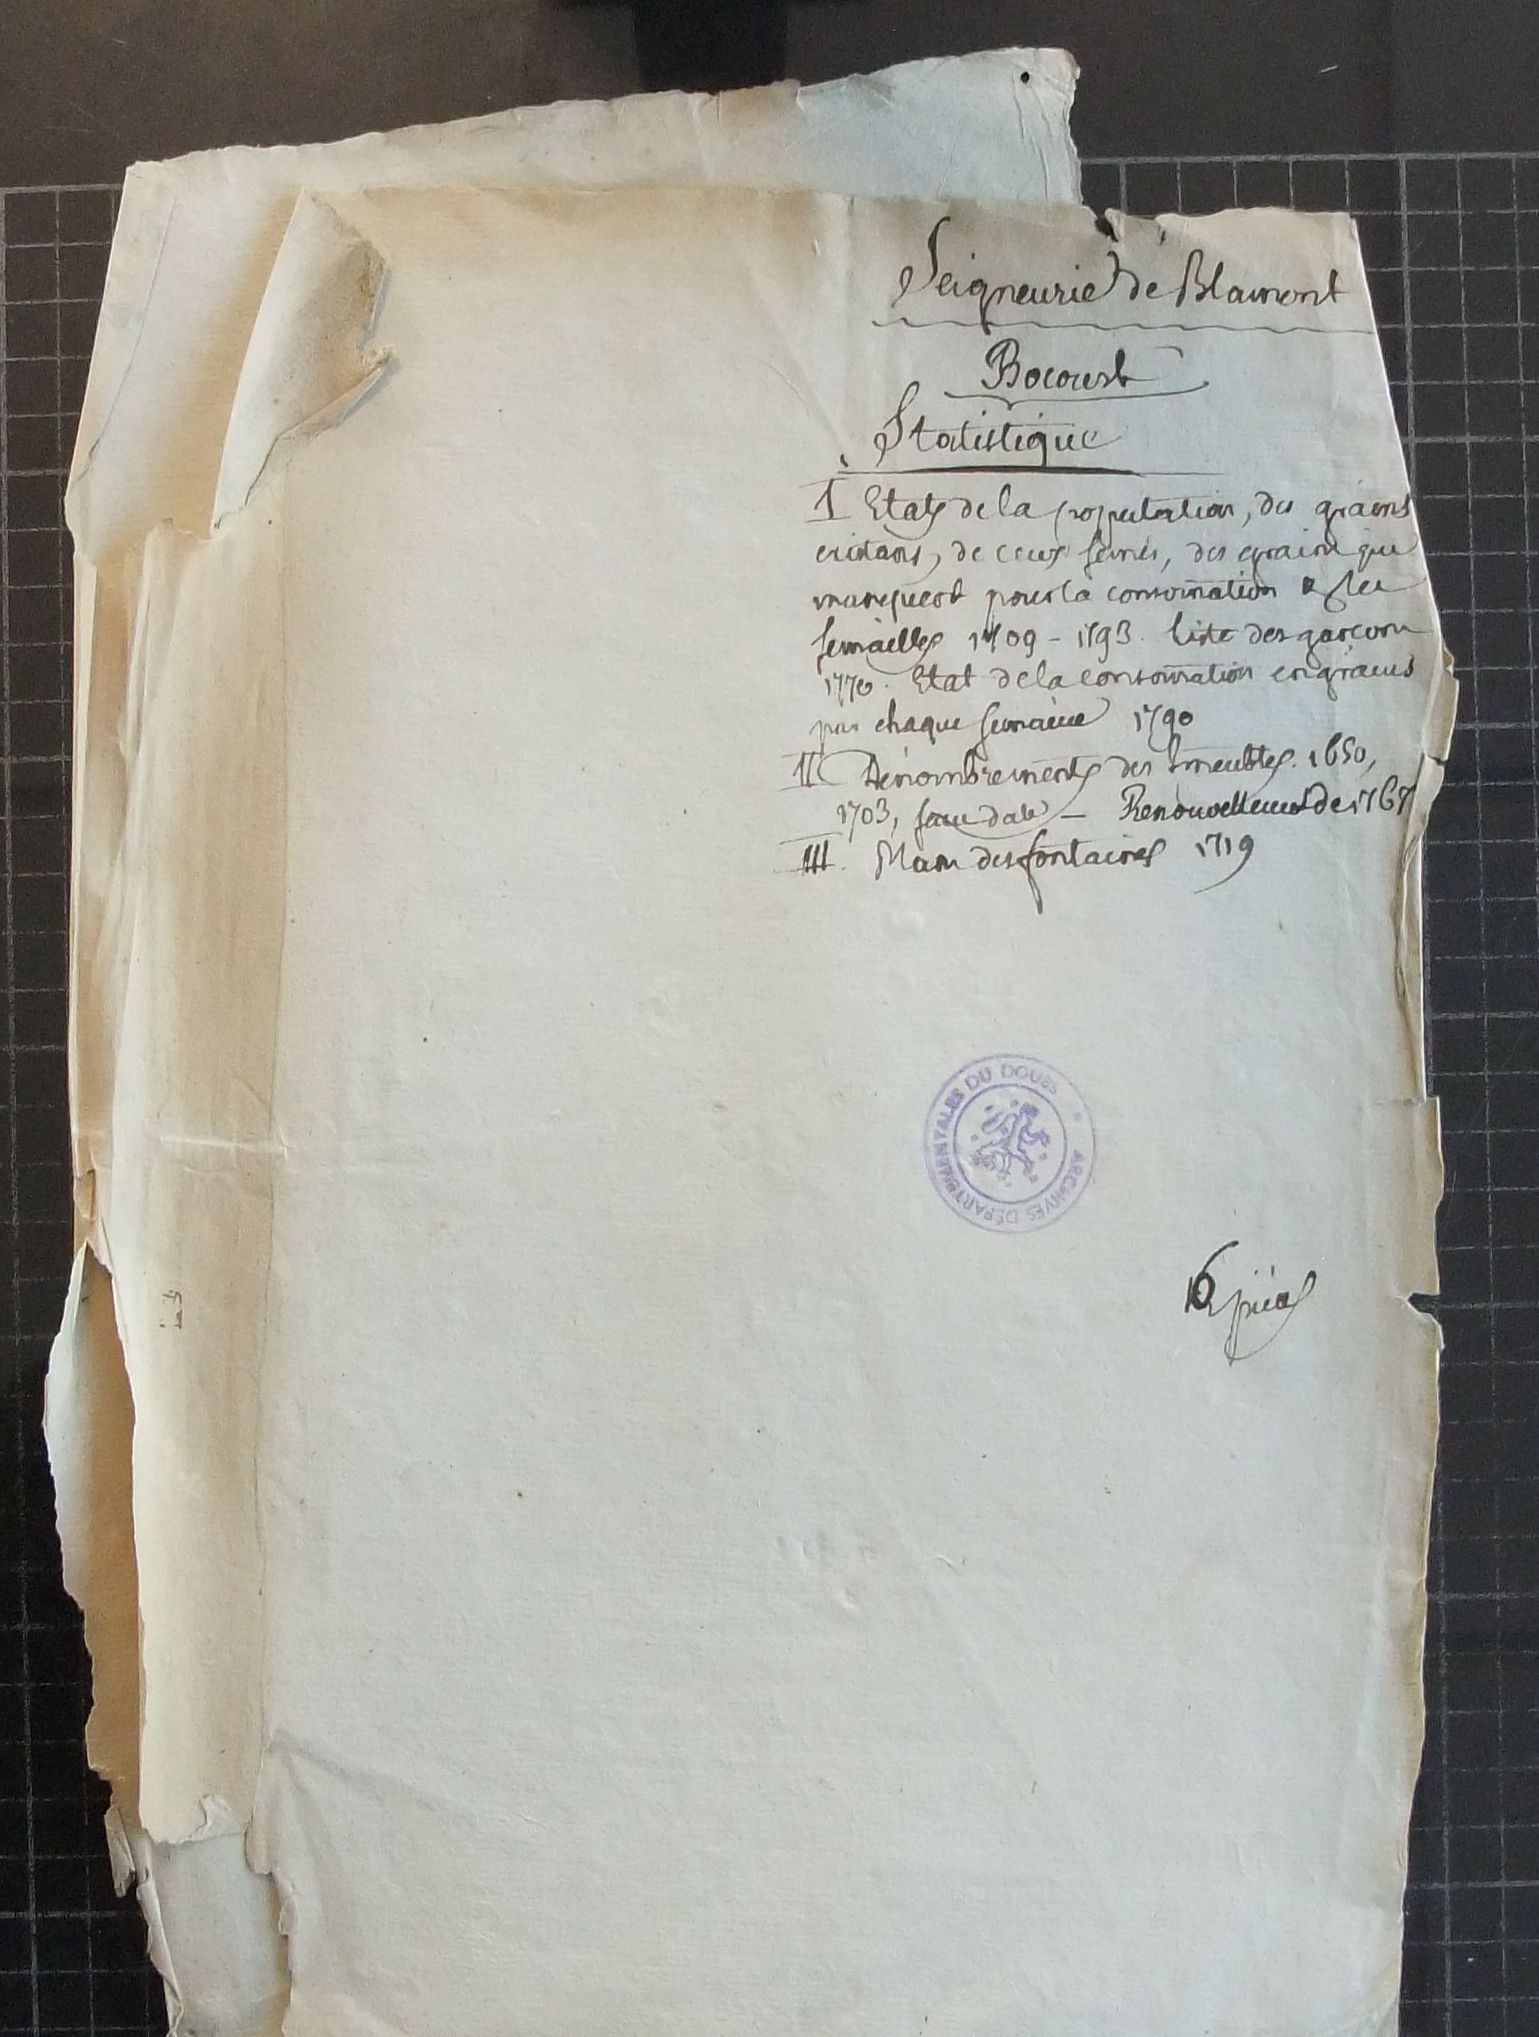 Seigneurie de Blamont
Bocourt
Statistique
I Etats de la population, des grains
existans, de ceux semés, des grains qui
manquent pour la consommation & les
semailles 1709 - 1793. Liste des garçons
1770. Etat de la consommation en grains
par chaque semaine 1790
II Dénombrements des Imeubles. 1650,
1703, sans date — Renouvellement de 1767
III. Plan des fontaines 1719
ARCHIVES DÉPARTEMENTALES DU DOUBS
pièces